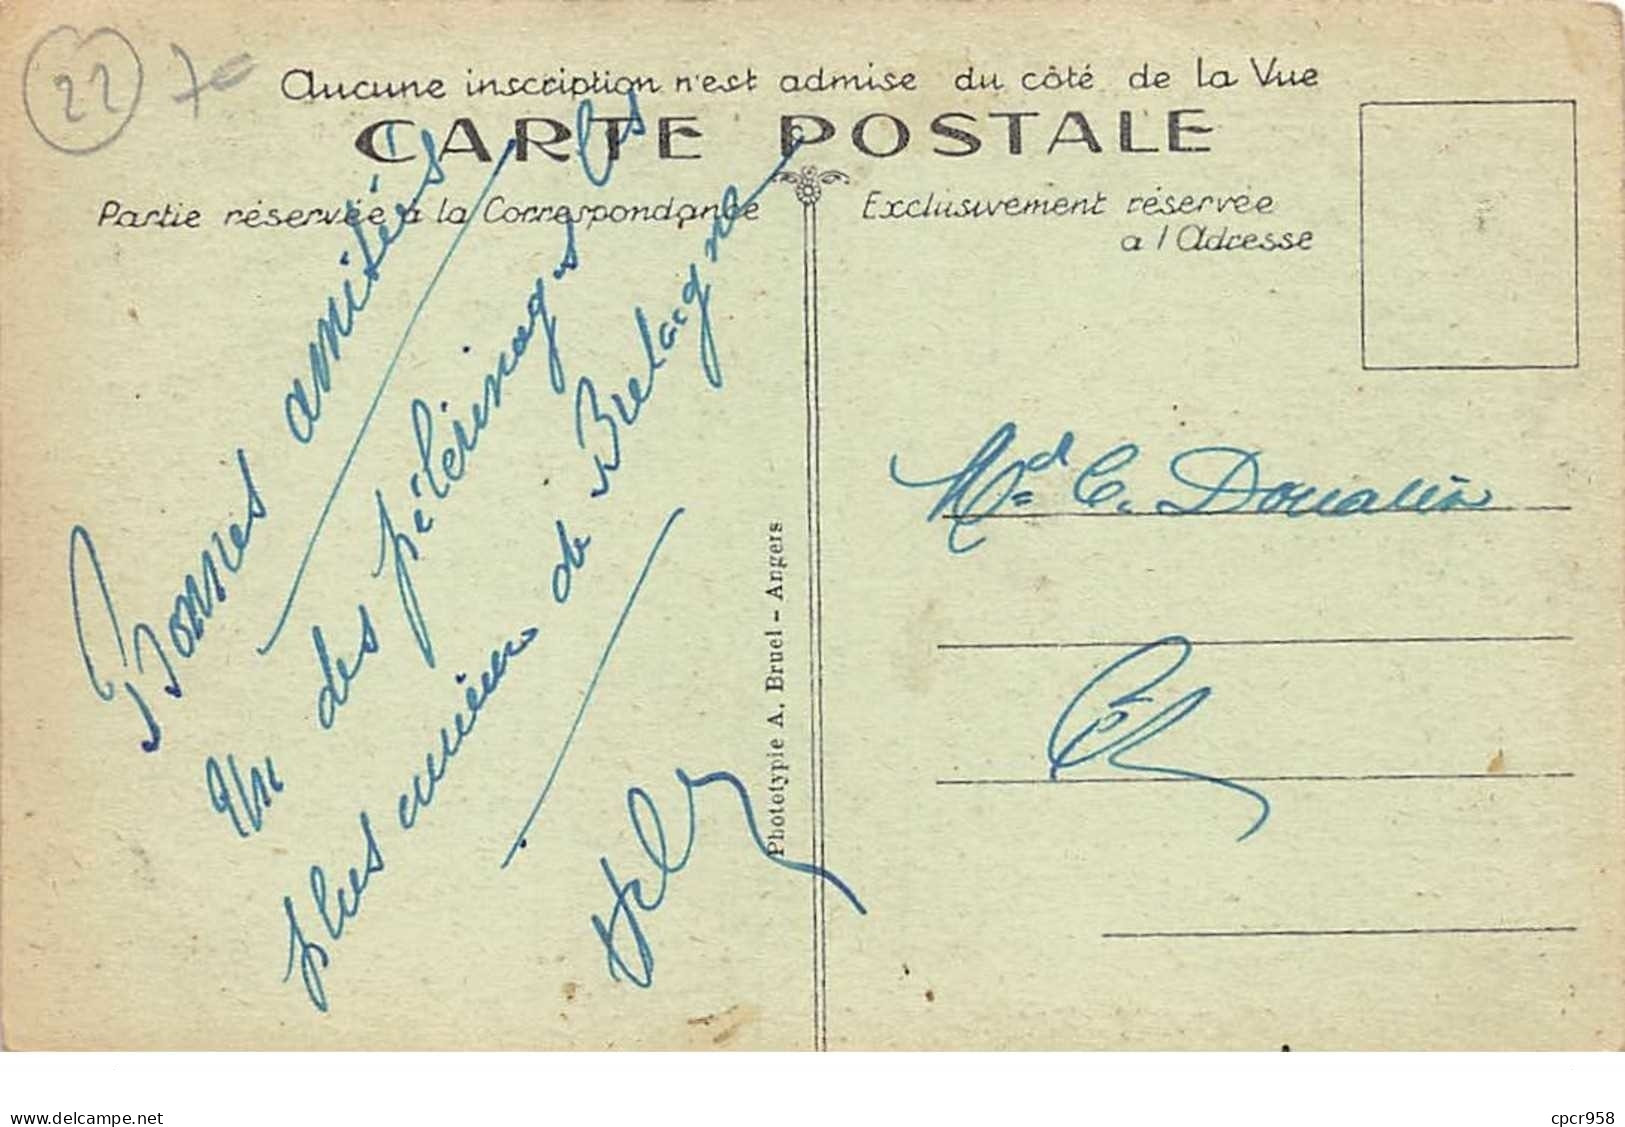 22 7
Aucune inscription n'est admise du côté de la Vue
CARTE POSTALE
Partie réservée à la Correspondance
Exclusivement réservée
a l'Adresse
Bonnes amitiés
Un des pèlerinages les
plus anciens de Bretagne
Md C. Doualin
Phototypie A. Bruel - Angers
www.delcampe.net
cpcr958